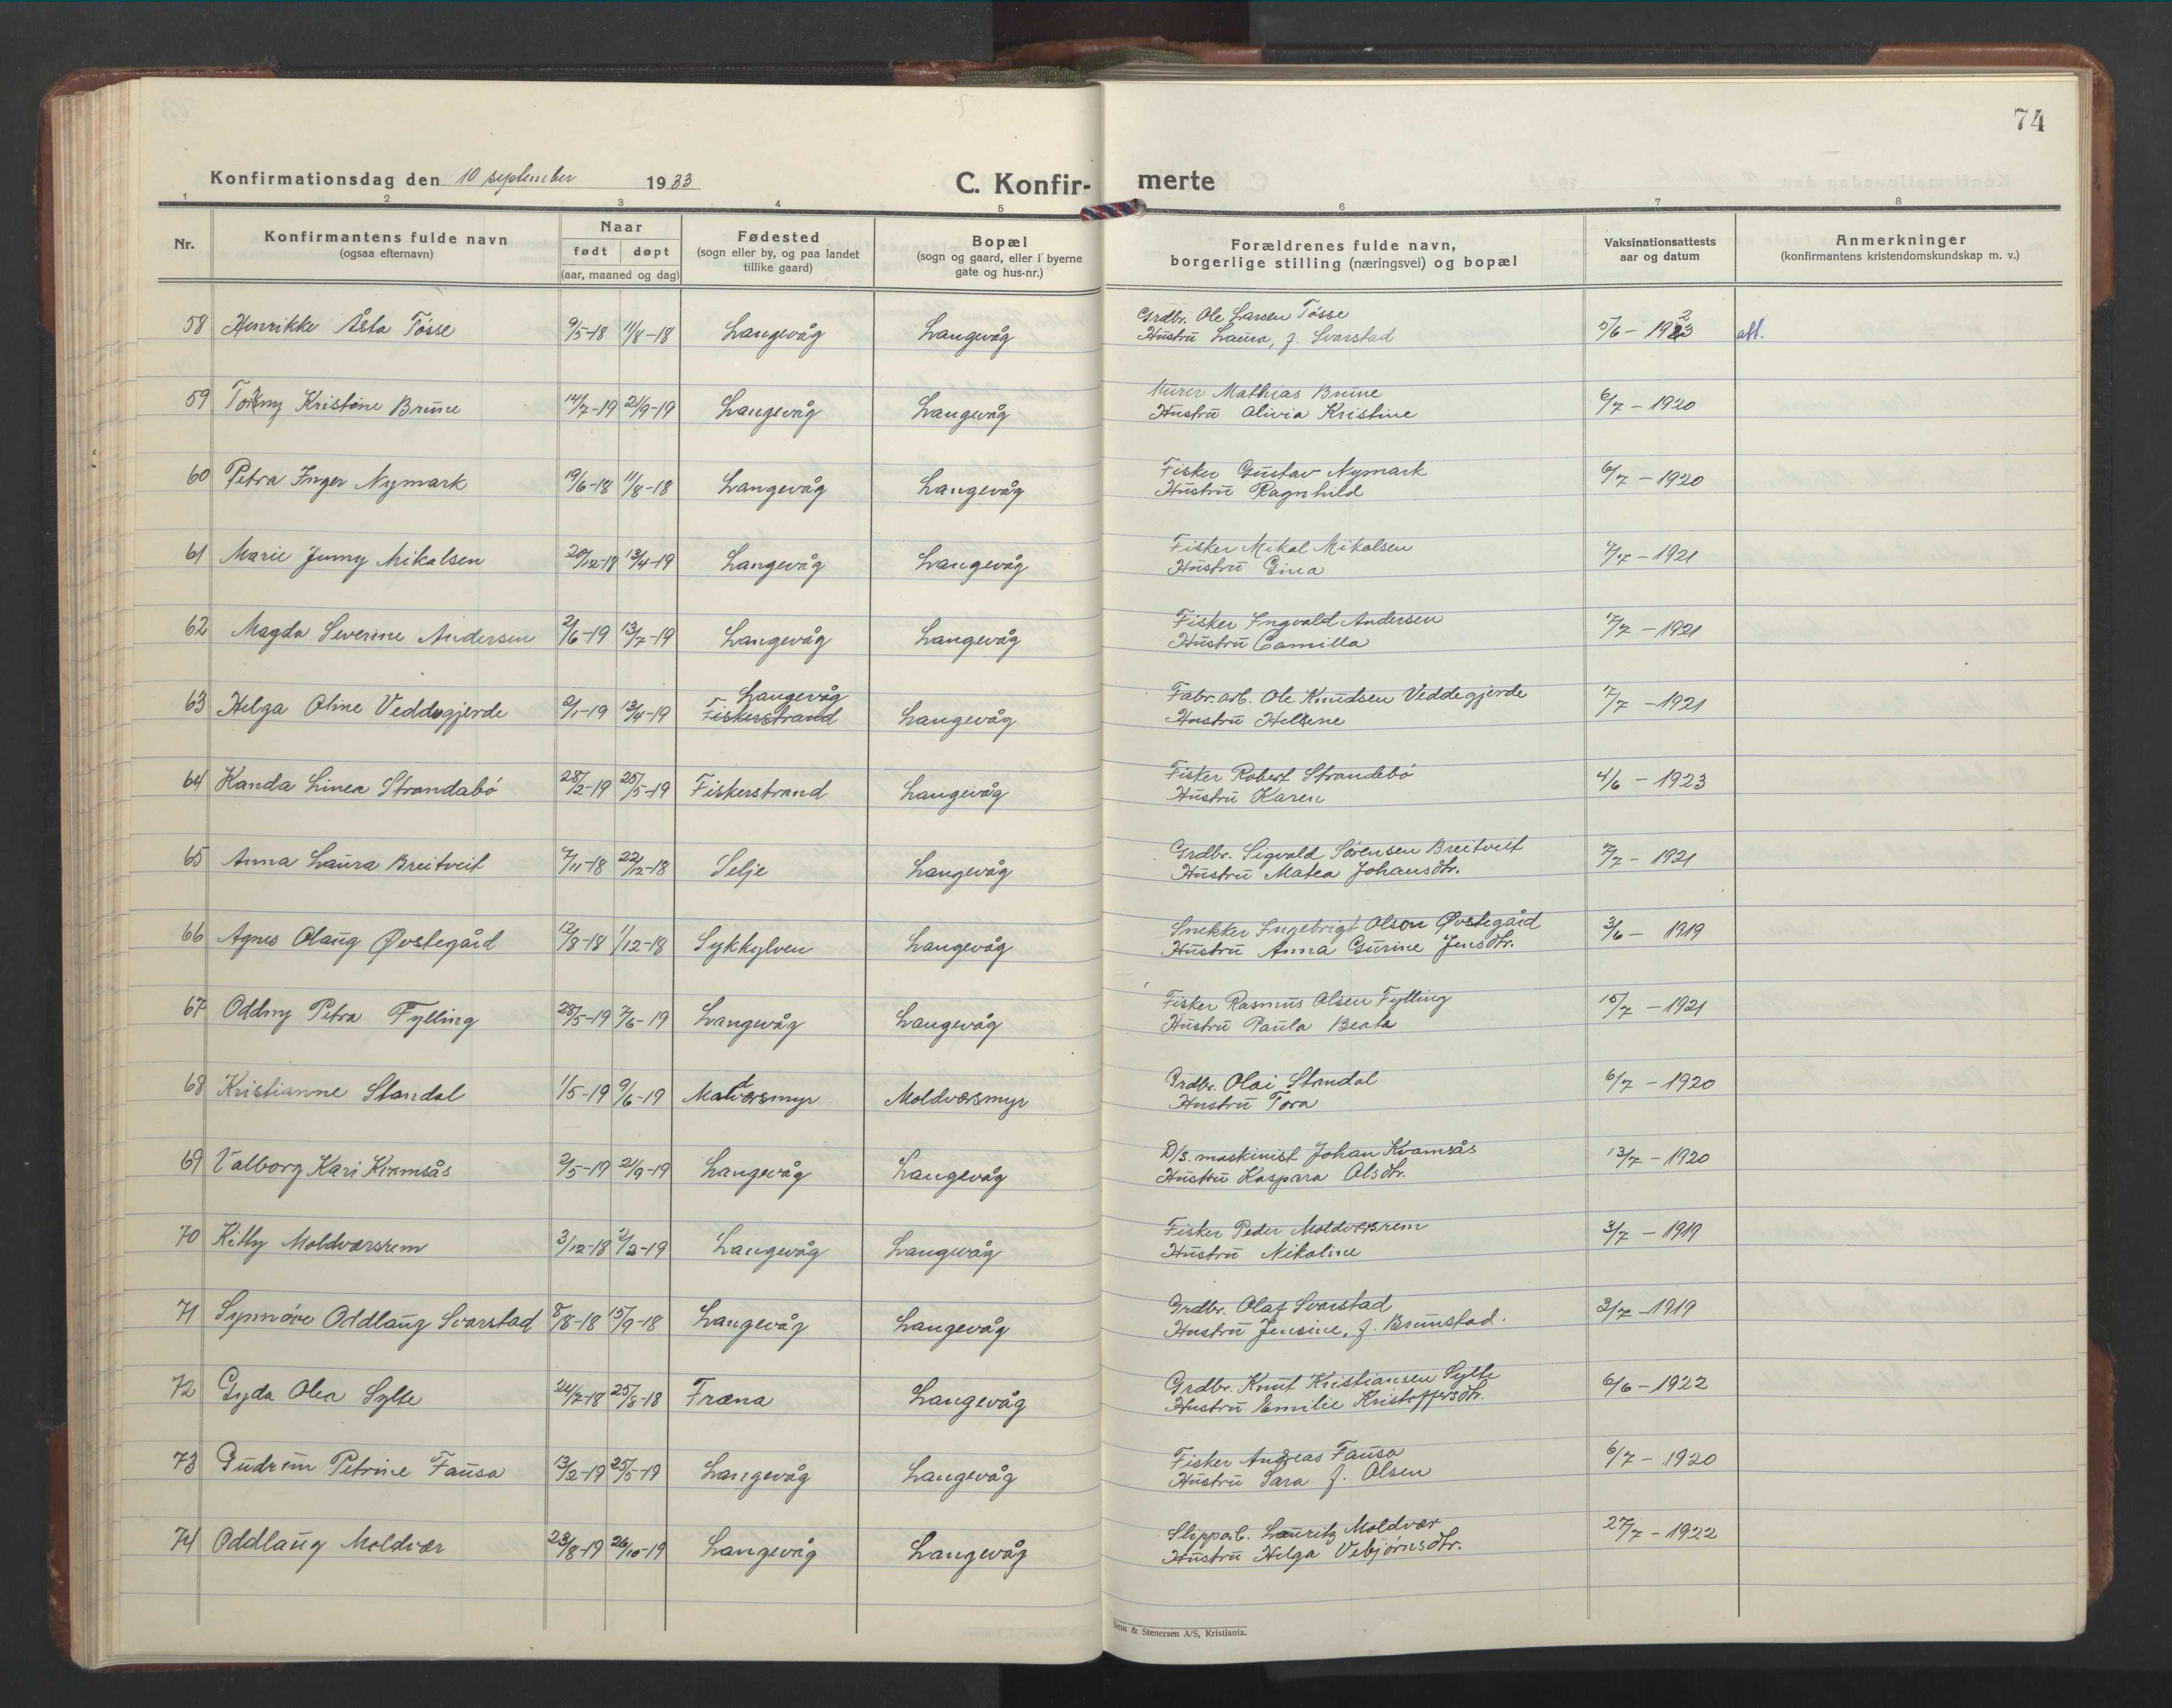 74
Konfirmationsdag den 10 september 1933
C. Konfir- merte
1 2 3 4 5 6 7 8
Nr.
Konfirmantens fulde navn
(ogsaa efternavn)
Naar
født døpt
(aar, maaned og dag)
Fødested
(sogn eller by, og paa landet
tillike gaard)
Bopæl
(sogn og gaard, eller i byerne
gate og hus-nr.)
Forældrenes fulde navn,
borgerlige stilling (næringsvei) og bopæl
Vaksinationsattests
aar og datum
Anmerkninger
(konfirmantens kristendomskundskap m. v.)
58 Henrikke Åsta Tösse 9/5-18 11/8-18 Langevåg Langevåg Grdbr. Ole Larsen Tösse
Hustrū Laūra, f. Svorstad 5/6 - 1923 att.
59 Torny Kristine Brūne 14/7-19 21/9-19 Langevåg Langevåg Mūrer Mathias Brūne
Hūstrū Olivia Kristine 6/7 - 1920
60 Petra Inger Nymark 19/6-18 11/8-18 Langevåg Langevåg Fisker Gūstav Nymark
Hūstrū Ragnhild 6/7 - 1920
61 Marie Jenny Mikalsen 20/12-18 13/4-19 Langevåg Langevåg Fisker Mikal Mikalsen
Hūstrū Gina 7/7 - 1921
62 Magda Severine Andersen 2/6-19 13/7-19 Langevåg Langevåg Fisker Ingvald Andersen
Hūstrū Camilla 7/7 - 1921
63 Helga Oline Veddegjerde 2/1-19 13/4-19 Langevåg
Fiskerstrand Langevåg Fabr.arb. Ole Knūdsen Veddegjerde
Hustrū Hellene 7/7 - 1921
64 Kanda Linea Strandabö 28/2-19 25/5-19 Fiskerstrand Langevåg Fisker Robert Strandebö
Hūstrū Karen 4/6 - 1923
65 Anna Laūra Breitveit 7/11-18 22/12-18 Selje Langevåg Grdbr. Sigvald Sörensen Breitveit
Hūstrū Matea Johansdtr. 7/7 - 1921
66 Agnes Olaūg Øvstegård 12/8-18 1/12-18 Sykkylven Langevåg Snekker Ingebrigt Olsen Øvstegård
Hūstrū Anna Gūrine Jensdtr. 3/6 - 1919
67 Oddny Petra Fylling 28/5-19 7/6-19 Langevåg Langevåg Fisker Rasmūs Olsen Fylling
Hūstrū Paūla Beata 15/7 - 1921
68 Kristianne Standal 1/5-19 9/6-19 Moldværsmyr Moldværsmyr Grdbr. Olai Standal
Hustrū Tora 6/7 - 1920
69 Valborg Kari Kvamsås 2/5-19 21/9-19 Langevåg Langevåg D/s. maskinist Johan Kvamsås
Hūstrū Kaspara Olsdtr. 13/7 - 1920
70 Kitty Moldværsrem 3/12-18 2/2-19 Langevåg Langevåg Fisker Peder Moldværsrem
Hūstrū Nikoline 3/7 - 1919
71 Synnöve Oddlaūg Svorstad 8/8-18 15/9-18 Langevåg Langevåg Grdbr. Olaf Svorstad
Hustrū Jensine, f. Brūnstad. 3/7 - 1919
72 Gyda Olea Sylte 24/7-18 25/8-18 Fræna Langevåg Grdbr. Knūt Kristiansen Sylte
Hustrū Emilie Kristoffersdtr. 6/6 - 1922
73 Gūdrūn Petrine Faūsa 13/2-19 25/5-19 Langevåg Langevåg Fisker Andreas Faūsa
Hūstrū Sara f. Olsen 6/7 - 1920
74 Oddlaūg Moldvær 23/8-19 26/10-19 Langevåg Langevåg Slipparb. Laūritz Moldvær
Hūstrū Helga Vebjörnsdtr. 27/7 - 1922
Sem & Stenersen A/S, Kristiania.